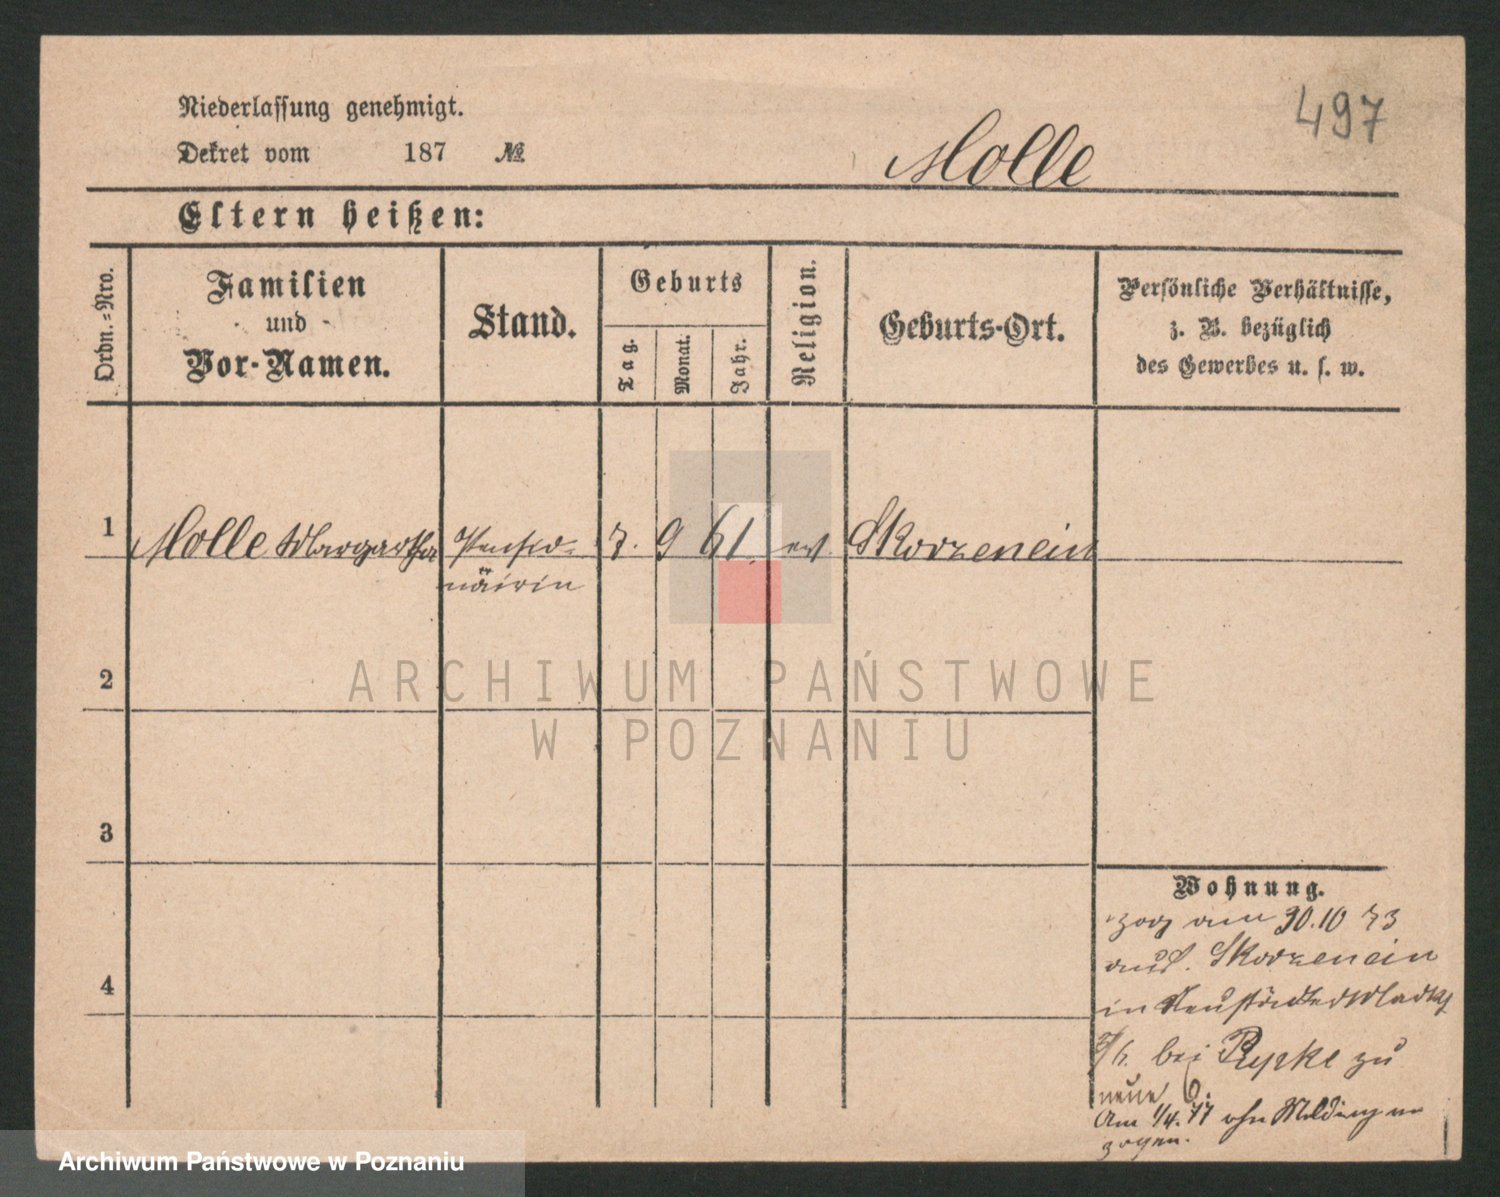 497
Niederlassung genehmigt.
Dekret vom 187 №
Molle
Eltern heißen:
Ordn.-Nro.
Familien
und
Vor-Namen.
Stand.
Geburts
Tag.
Monat.
Jahr.
Religion.
Geburts-Ort.
Persönliche Verhältnisse,
z. B. bezüglich
des Gewerbes u. s. w.
1 Molle Margaretha Pensio- 7. 9 61 ev. Skorzencin
närin
2
3
4
Wohnung.
zog am 30.10 73
aus. Skorzencin
in Neustädter Markt
bei zu
neue 6.
Am 1/4. 77 ohne Meldung
zogen.
ARCHIWUM PAŃSTWOWE
W POZNANIU
Archiwum Państwowe w Poznaniu